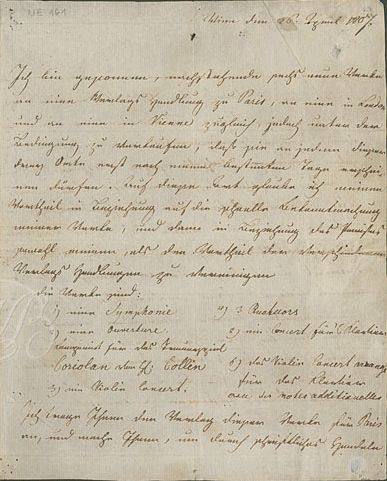 NE 161
Wien den 26t April 1807.
Ich bin gesonnen, nachstehende sechs neue Werke
an eine Verlags Handlung zu Paris, an eine in London
und an eine in Vienne zugleich, jedoch unter der
Bedingung zu verkaufen, daß sie an jedem dieser
drey Orte erst nach einem bestimmten Tage erschei
nen dürfen. Auf diese Art glaube ich meinen
Vortheil in Beziehung auf die schnelle Bekanntmachung
meiner Werke, und dann in Beziehung des Preises
sowohl meinen, als den Vortheil der verschiedenen
Verlags Handlungen zu vereinigen
die Werke sind:
1) eine Symphonie
2) eine Ouverture
componirt für das Trauerspiel
Coriolan von H. Collin
3) ein Violin Concert.
4) 3 Quatuors
5) ein Concert fürs Klavier
6) das Violin Concert
für das Klavier
avec des notes additionelles
Ich trage Ihnen den Verlag dieser Werke für Paris
an, und mache Ihnen, um durch schriftliches Handeln